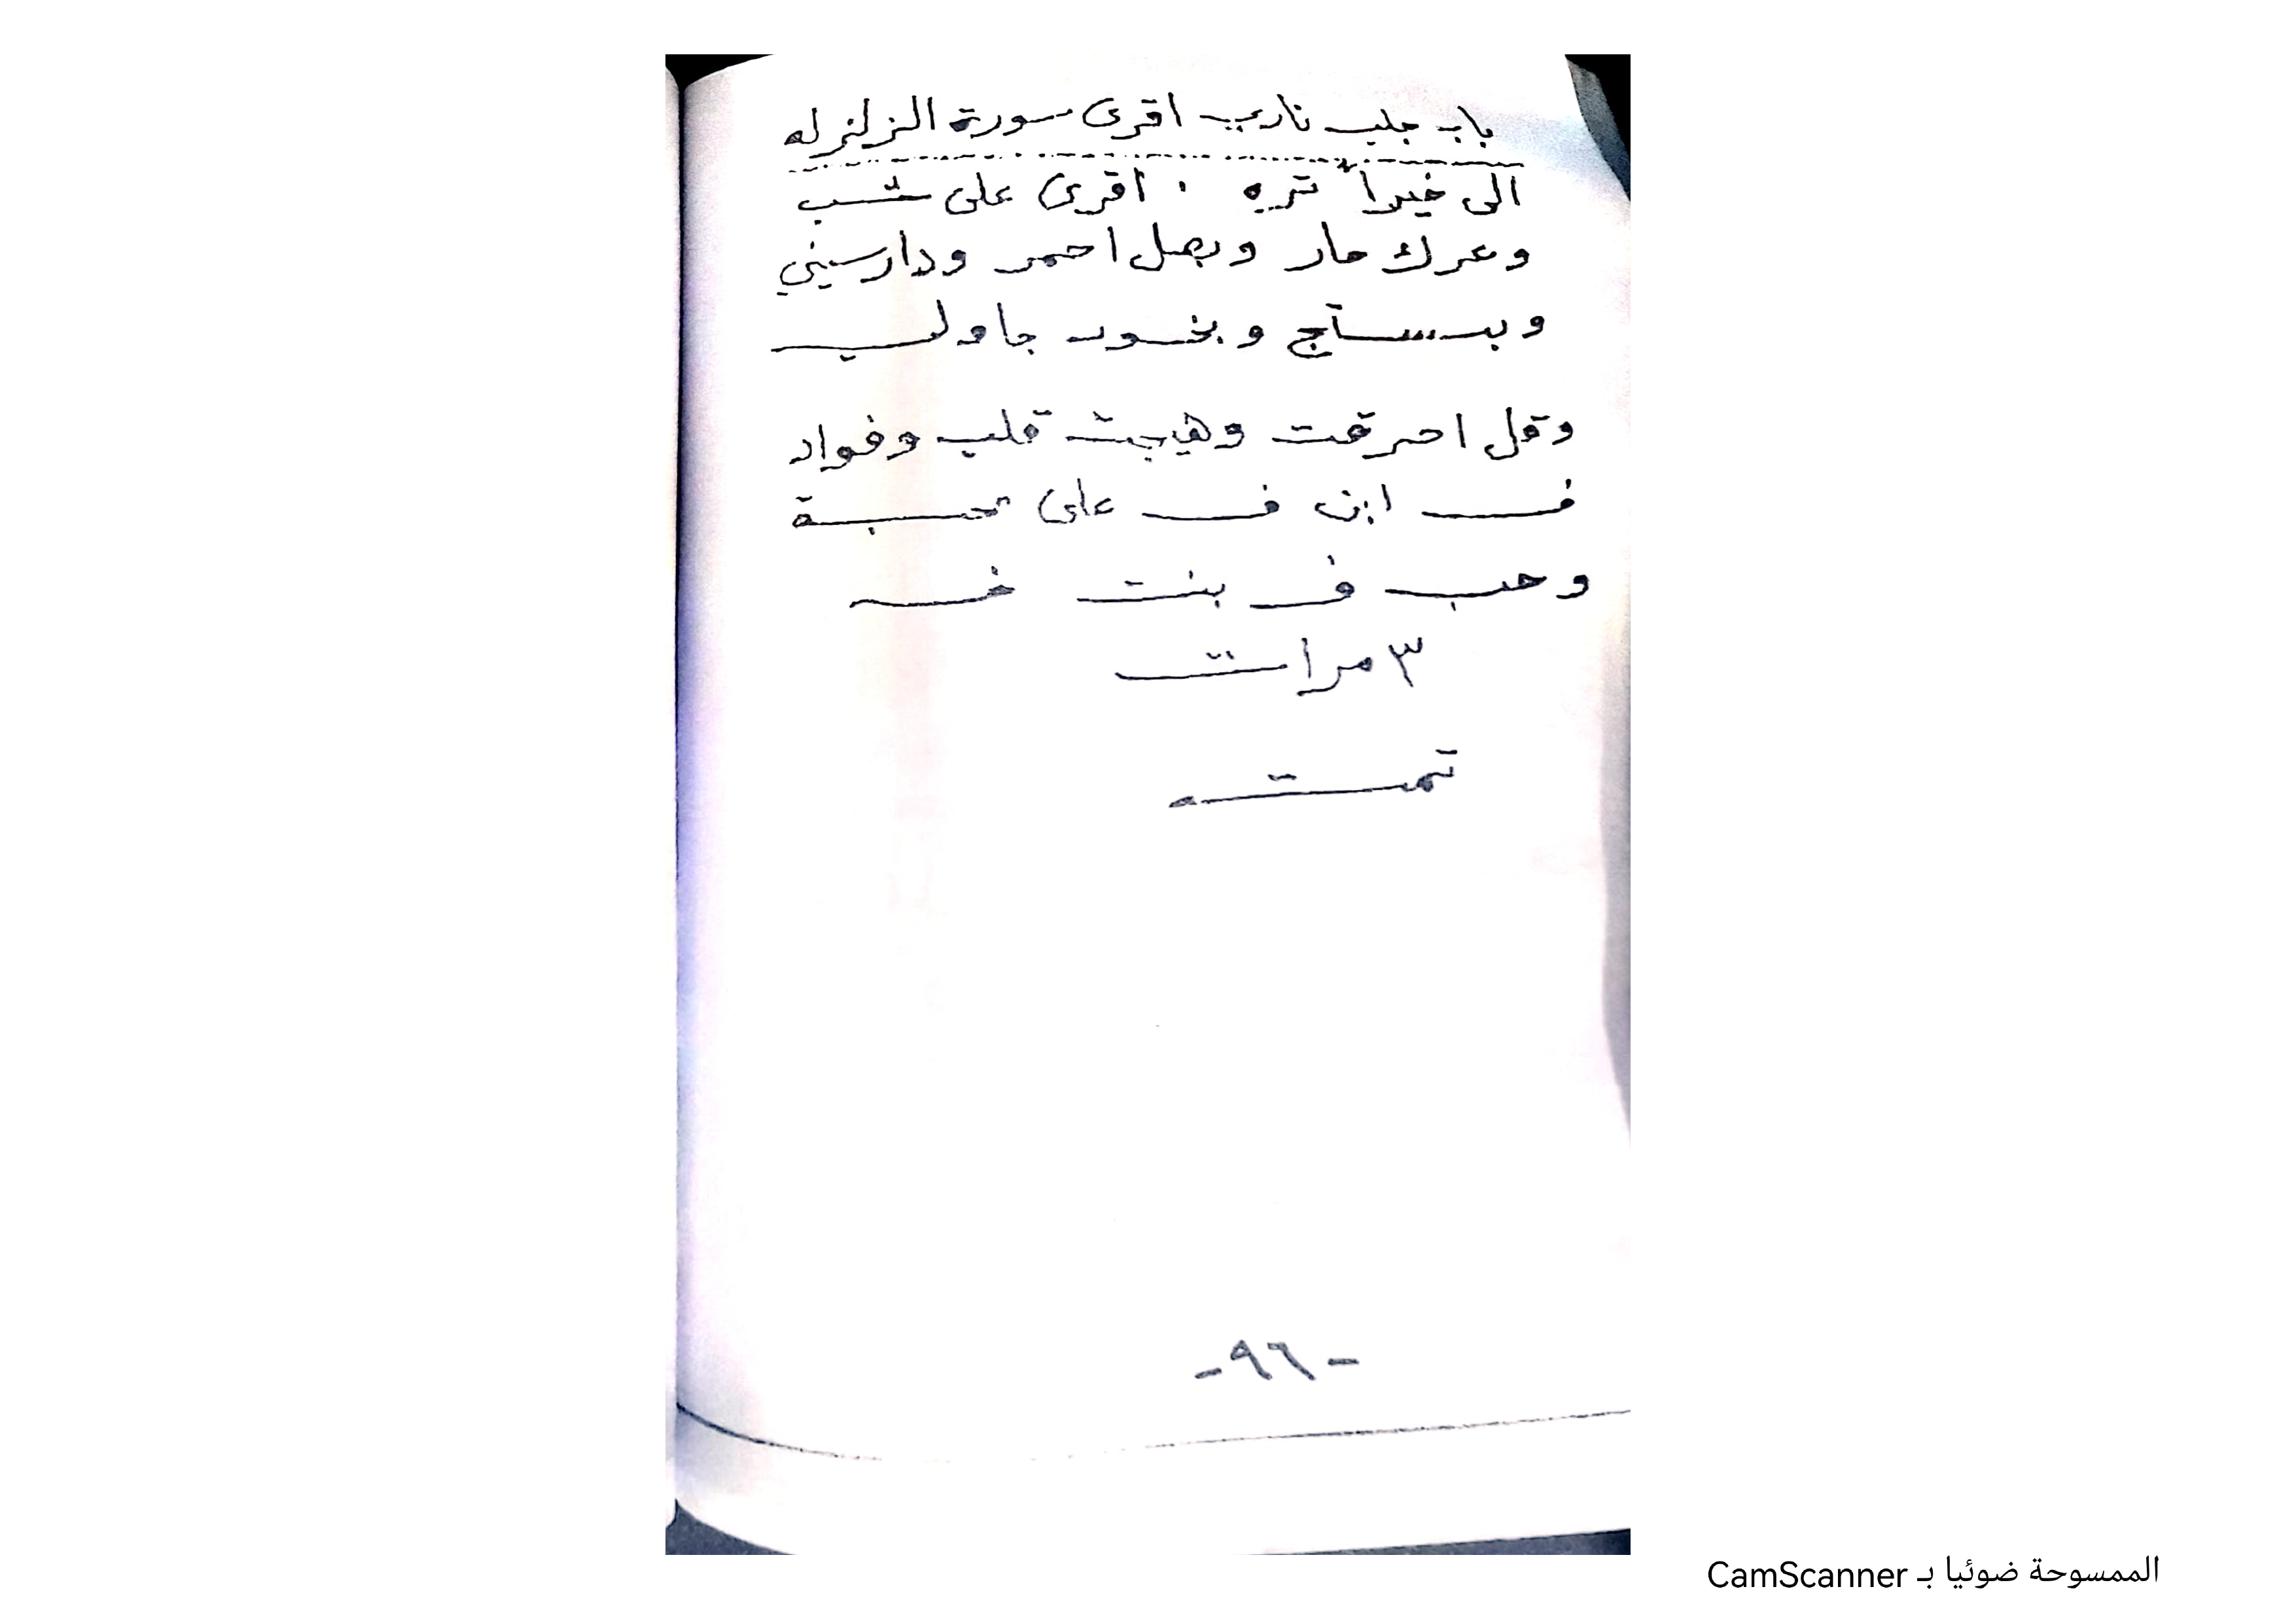 باب جلب ناري اقرى سورة الزلزله
الى خيراً تره . اقرى على شب
وعرك حار وبصل احمر ودارسيني
وبستج وبخور جاولي
وقل احرقت وهيجت قلب وفواد
ف ابن ف على محبة
وحب ف بنت ف
٣ مرات
تمت
-٩٦-
الممسوحة ضوئيا بـ CamScanner